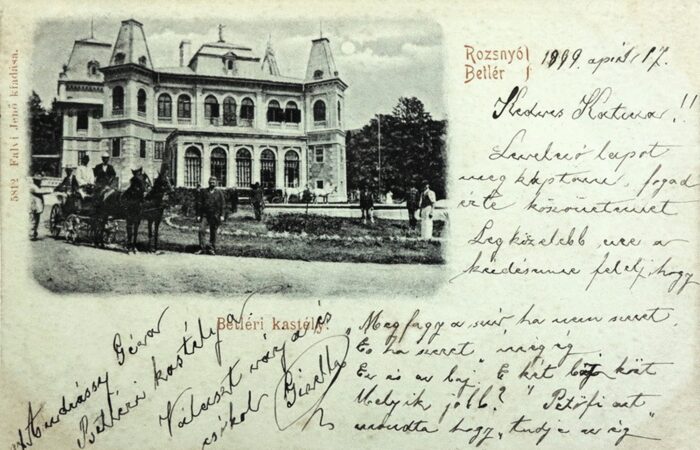 5812 Falvi Jenő kiadása.
Rozsnyó
Betlér
1899. april 17.
Kedves !!
Levelező lapot
meg kaptam, fogad
érte köszönetemet
Legközelebb, erre a
kérdésemre felelj, hogy
Betléri kastély.
„Megfagy a szív ha nem szeret,
És ha szeret" megég
Ez is az baj, E két baj közt
Melyik jobb?" Petőfi azt
mondta hogy, „tudja az ég"
Andrássy
Betléri kastélya
Választ várja és
csókol Gizella